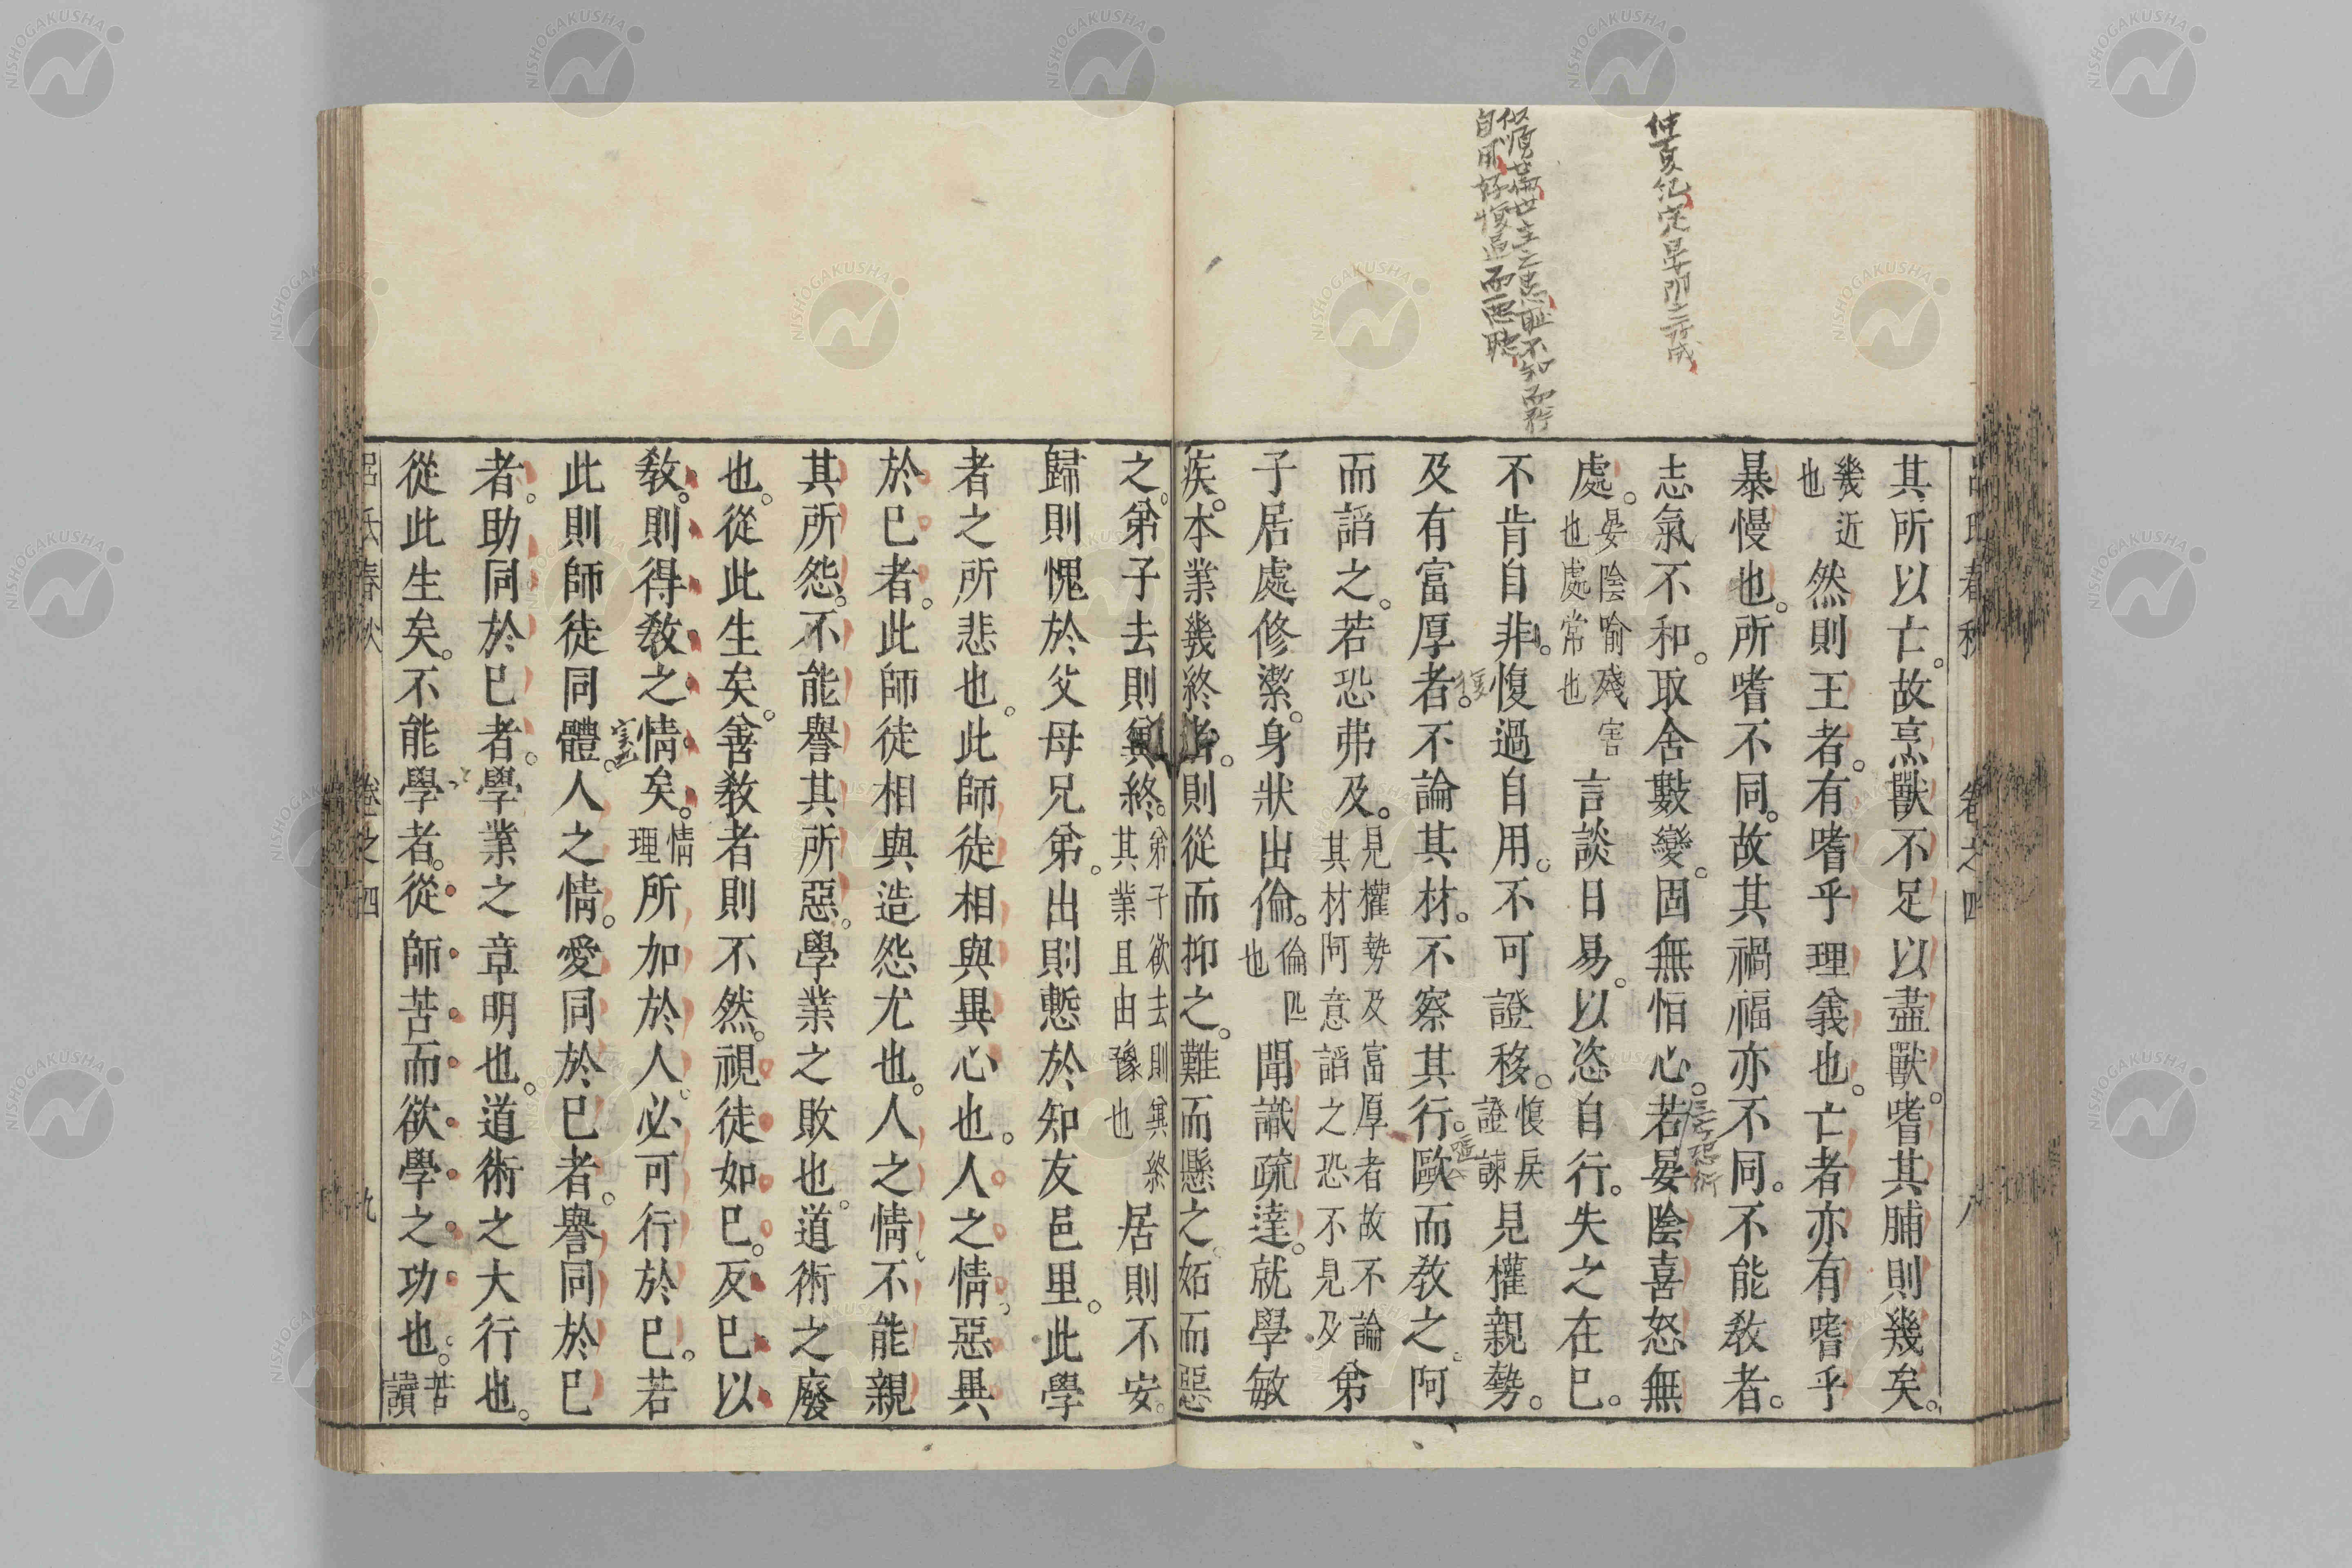 仲夏紀
呂氏春秋 卷之四 八
其所以亡。故烹獸不足以盡獸。嗜其脯則幾矣。
幾近也然則王者。有嗜乎理義也。亡者亦有嗜乎
暴慢也。所嗜不同。故其禍福亦不同。不能敎者。
志氣不和。取舍數變。固無恒心。若晏陰喜怒無
處。晏陰喻殘害也處常也言談日易。以恣自行。失之在己。
不肯自非。愎過自用。不可證移。愎戾證諫見權親勢。
及有富厚者。不論其材。不察其行。敺而敎之。阿
而諂之。若恐弗及。見權勢及富厚者故不論其材阿意諂之恐不見及弟
子居處修潔。身狀出倫。倫匹也聞識疏達。就學敏
疾。本業幾終者。則從而抑之。難而懸之。妬而惡
之。弟子去則冀終。弟子欲去則冀終其業且由豫也居則不安。
歸則愧於父母兄弟。出則慙於知友邑里。此學
者之所悲也。此師徒相與異心也。人之情。惡異
於己者。此師徒相與造怨尤也。人之情。不能親
其所怨。不能譽其所惡。學業之敗也。道術之廢
也。從此生矣。善敎者則不然。視徒如己。反己以
敎。則得敎之情矣。情理所加於人。必可行於己。若
此則師徒同體。人之情。愛同於己者。譽同於己
者。助同於己者。學業之章明也。道術之大行也。
從此生矣。不能學者。從師苦而欲學之功也。苦讀
呂氏春秋 卷之四 九